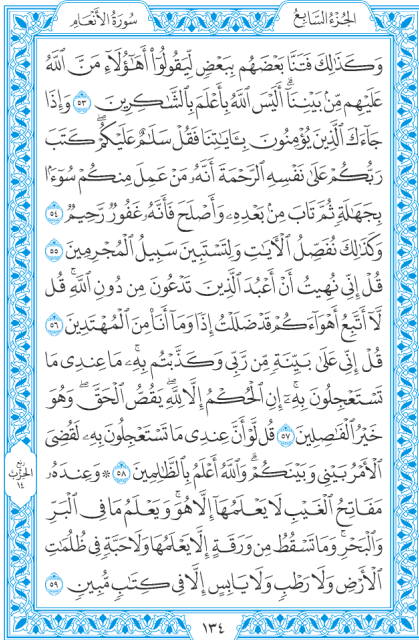 الجُزْءُ السَّابِعُ
سُورَةُ الأَنْعَامِ
وَكَذَٰلِكَ فَتَنَّا بَعْضَهُم بِبَعْضٍ لِّيَقُولُوٓا۟ أَهَٰٓؤُلَآءِ مَنَّ ٱللَّهُ
عَلَيْهِم مِّنۢ بَيْنِنَآ ۗ أَلَيْسَ ٱللَّهُ بِأَعْلَمَ بِٱلشَّٰكِرِينَ ٥٣ وَإِذَا
جَآءَكَ ٱلَّذِينَ يُؤْمِنُونَ بِـَٔايَٰتِنَا فَقُلْ سَلَٰمٌ عَلَيْكُمْ ۖ كَتَبَ
رَبُّكُمْ عَلَىٰ نَفْسِهِ ٱلرَّحْمَةَ ۖ أَنَّهُۥ مَنْ عَمِلَ مِنكُمْ سُوٓءًۢا
بِجَهَٰلَةٍ ثُمَّ تَابَ مِنۢ بَعْدِهِۦ وَأَصْلَحَ فَأَنَّهُۥ غَفُورٌ رَّحِيمٌ ٥٤
وَكَذَٰلِكَ نُفَصِّلُ ٱلْـَٔايَٰتِ وَلِتَسْتَبِينَ سَبِيلُ ٱلْمُجْرِمِينَ ٥٥
قُلْ إِنِّى نُهِيتُ أَنْ أَعْبُدَ ٱلَّذِينَ تَدْعُونَ مِن دُونِ ٱللَّهِ ۚ قُل
لَّآ أَتَّبِعُ أَهْوَآءَكُمْ ۙ قَدْ ضَلَلْتُ إِذًا وَمَآ أَنَا۠ مِنَ ٱلْمُهْتَدِينَ ٥٦
قُلْ إِنِّى عَلَىٰ بَيِّنَةٍ مِّن رَّبِّى وَكَذَّبْتُم بِهِۦ ۚ مَا عِندِى مَا
تَسْتَعْجِلُونَ بِهِۦٓ ۚ إِنِ ٱلْحُكْمُ إِلَّا لِلَّهِ ۖ يَقُصُّ ٱلْحَقَّ ۖ وَهُوَ
خَيْرُ ٱلْفَٰصِلِينَ ٥٧ قُل لَّوْ أَنَّ عِندِى مَا تَسْتَعْجِلُونَ بِهِۦ لَقُضِىَ
ٱلْأَمْرُ بَيْنِى وَبَيْنَكُمْ ۗ وَٱللَّهُ أَعْلَمُ بِٱلظَّٰلِمِينَ ٥٨ ۞ وَعِندَهُۥ
مَفَاتِحُ ٱلْغَيْبِ لَا يَعْلَمُهَآ إِلَّا هُوَ ۚ وَيَعْلَمُ مَا فِى ٱلْبَرِّ
وَٱلْبَحْرِ ۚ وَمَا تَسْقُطُ مِن وَرَقَةٍ إِلَّا يَعْلَمُهَا وَلَا حَبَّةٍ فِى ظُلُمَٰتِ
ٱلْأَرْضِ وَلَا رَطْبٍ وَلَا يَابِسٍ إِلَّا فِى كِتَٰبٍ مُّبِينٍ ٥٩
ربع
الحزب
١٤
١٣٤